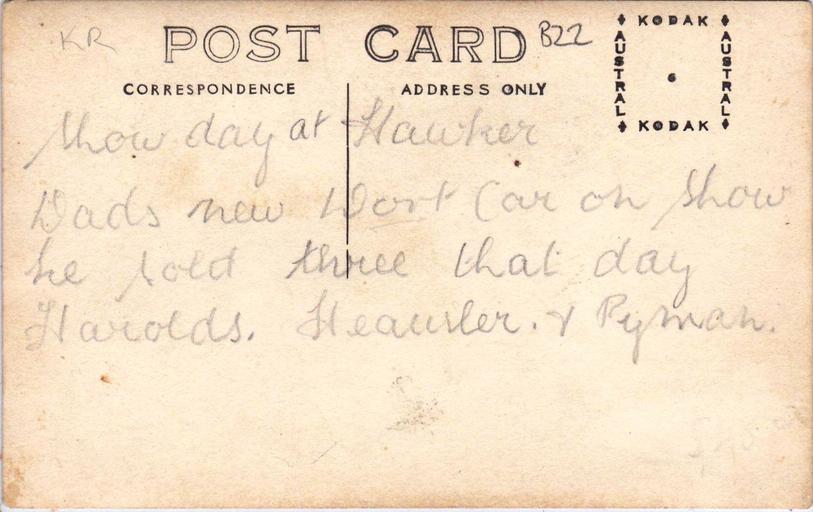 KR
POST CARD B22
CORRESPONDENCE
ADDRESS ONLY
KODAK
AUSTRAL
6
AUSTRAL
KODAK
Show day at Hawker
Dads new Dort Car on Show
he sold three that day
Harolds. Heausler. & Pyman.